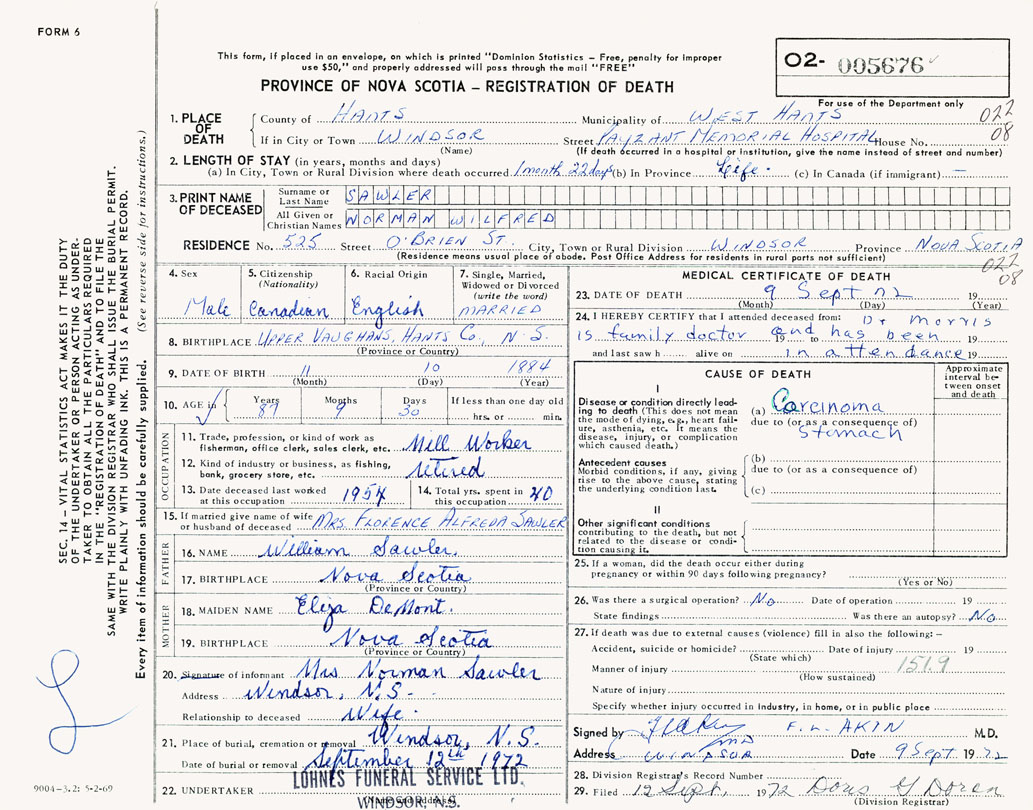 FORM 6
This form, if placed in an envelope, on which is printed "Dominion Statistics – Free, penalty for improper
use $50," and properly addressed will pass through the mail "FREE"
O2- 005676
PROVINCE OF NOVA SCOTIA – REGISTRATION OF DEATH
For use of the Department only
1. PLACE OF DEATH County of HANTS Municipality of WEST HANTS 022
If in City or Town WINDSOR Street PAYZANT MEMORIAL HOSPITAL House No. 08
(Name) (If death occurred in a hospital or institution, give the name instead of street and number)
2. LENGTH OF STAY (in years, months and days)
(a) In City, Town or Rural Division where death occurred 1 month 22 days (b) In Province Life. (c) In Canada (if immigrant) —
3. PRINT NAME OF DECEASED Surname or Last Name SAWLER
All Given or Christian Names NORMAN WILFRED
RESIDENCE No. 525 Street O'BRIEN ST. City, Town or Rural Division WINDSOR Province NOVA SCOTIA
(Residence means usual place of abode. Post Office Address for residents in rural parts not sufficient) 022
08
4. Sex Male
5. Citizenship (Nationality) Canadian
6. Racial Origin English
7. Single, Married, Widowed or Divorced (write the word) MARRIED
8. BIRTHPLACE UPPER VAUGHANS, HANTS Co., N.S.
(Province or Country)
9. DATE OF BIRTH 11 10 1884
(Month) (Day) (Year)
10. AGE in Years 87 Months 9 Days 30 If less than one day old
hrs. or min.
OCCUPATION
11. Trade, profession, or kind of work as
fisherman, office clerk, sales clerk, etc. Mill Worker
12. Kind of industry or business, as fishing,
bank, grocery store, etc. retired
13. Date deceased last worked at this occupation 1954 14. Total yrs. spent in this occupation 40
15. If married give name of wife
or husband of deceased MRS. FLORENCE ALFREDA SAWLER
FATHER
16. NAME William Sawler.
17. BIRTHPLACE Nova Scotia
(Province or Country)
MOTHER
18. MAIDEN NAME Eliza DeMont.
19. BIRTHPLACE Nova Scotia
(Province or Country)
20. Signature of informant Mrs Norman Sawler
Address Windsor, N.S.
Relationship to deceased Wife.
21. Place of burial, cremation or removal Windsor, N.S.
Date of burial or removal September 12th 1972
22. UNDERTAKER LOHNES FUNERAL SERVICE LTD.
WINDSOR, N.S.
MEDICAL CERTIFICATE OF DEATH
23. DATE OF DEATH 9 Sept 72 19
(Month) (Day) (Year)
24. I HEREBY CERTIFY that I attended deceased from: Dr Morris
is family doctor 19 and to has been 19
and last saw h alive on in attendance 19
CAUSE OF DEATH
Approximate interval between onset and death
I
Disease or condition directly leading to death (This does not mean the mode of dying, e.g., heart failure, asthenia, etc. It means the disease, injury, or complication which caused death.)
(a) Carcinoma
due to (or as a consequence of)
Stomach
Antecedent causes
Morbid conditions, if any, giving rise to the above cause, stating the underlying condition last.
(b)
due to (or as a consequence of)
(c)
II
Other significant conditions
contributing to the death, but not
related to the disease or condi-
tion causing it.
25. If a woman, did the death occur either during
pregnancy or within 90 days following pregnancy?
(Yes or No)
26. Was there a surgical operation? No Date of operation 19
State findings Was there an autopsy? No
27. If death was due to external causes (violence) fill in also the following: –
Accident, suicide or homicide? Date of injury 19
(State which)
Manner of injury 151.9
(How sustained)
Nature of injury
Specify whether injury occurred in industry, in home, or in public place
Signed by F. L. AKIN M.D.
Address WINDSOR Date 9 Sept 1972
28. Division Registrar's Record Number
29. Filed 12 Sept, 1972 Doris G Doran
(Division Registrar)
SEC. 14 – VITAL STATISTICS ACT MAKES IT THE DUTY
OF THE UNDERTAKER OR PERSON ACTING AS UNDER-
TAKER TO OBTAIN ALL THE PARTICULARS REQUIRED
IN THE "REGISTRATION OF DEATH" AND TO FILE THE
SAME WITH THE DIVISION REGISTRAR WHO SHALL ISSUE THE BURIAL PERMIT.
WRITE PLAINLY WITH UNFADING INK. THIS IS A PERMANENT RECORD.
Every item of information should be carefully supplied. (See reverse side for instructions.)
9004-3.2: 5-2-69